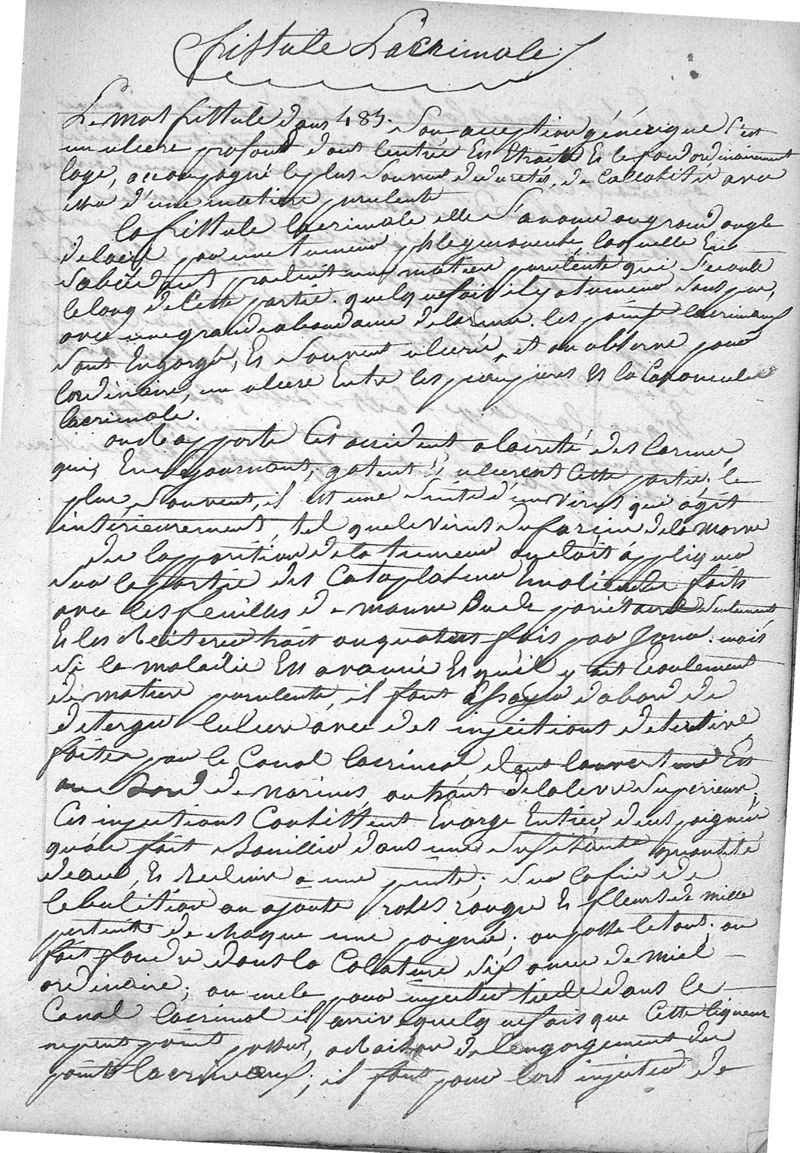 fistule Lacrimale
Le mot fistule dans 483. Son acception générique C'est
un ulcere profond dont lentrée Est Etroite Es le fond ordinairement
lage, accompagné le plus souvent de duretés, de Callosités avec
issu d'une matiere purulente
la fistule lacrimale elle S'anonce au grand angle
de laeil par une tumeur phlegmoneuse, laquelle En
S'abcedant produit une matiere purulente qui S'ecoule
le long de Cette partie. quelque fois il y a tumeur sans pus,
avec une grande abondance de larmes. les points lacrimaux
Sont Engorgés, Es Souvent ulcerés, et on observe pour
lordinaire, un ulcere Entre les paupieres Es la Caroncule
lacrimale.
on Rapporte Cet accident a lacreté des larmes,
qui, En sejournant, gatent Es ulcerent Cette partie. le
plus Souvent, il est une Suite d'un virus qui agit
interieurement, tel que le virus du farcin de la morve
des lapparition de la tumeur on doit appliquer
Sur la partie des Cataplasmes Emolients faits
avec les feuilles de mauve Ou de parietaire Seulement
Es les Reiterer trois ou quatre fois par Jour. mais
Si la maladie Est avancée Es qu'il y ait Ecoulement
de matiere purulente, il faut Essayer dabord de
deterger lulcere avec des injections detersives
faites par le Canal lacrimal dont louverture Est
au Bord de narines au haut de la levre Superieure.
Ces injections Consistent En orge Entier deux poignées
qu'on fait Bouillir dans une Suffisante quantité
deau, Es Reduire a une pinte; Sur la fin de
lebulition on ajoute Roses rouge Es fleurs de mille
pertuits de chaque une poignée. on passe le tout; on
fait fondre dans la Colature Six once de miel
ordinaire; on mele pour injecter tiede dans le
Canal lacrimal il arrive quelque fois que Cette liqueur
ne peut point passer, a Raison de lengorgement des
points lacrimeaux; il faut pour lors injecter de